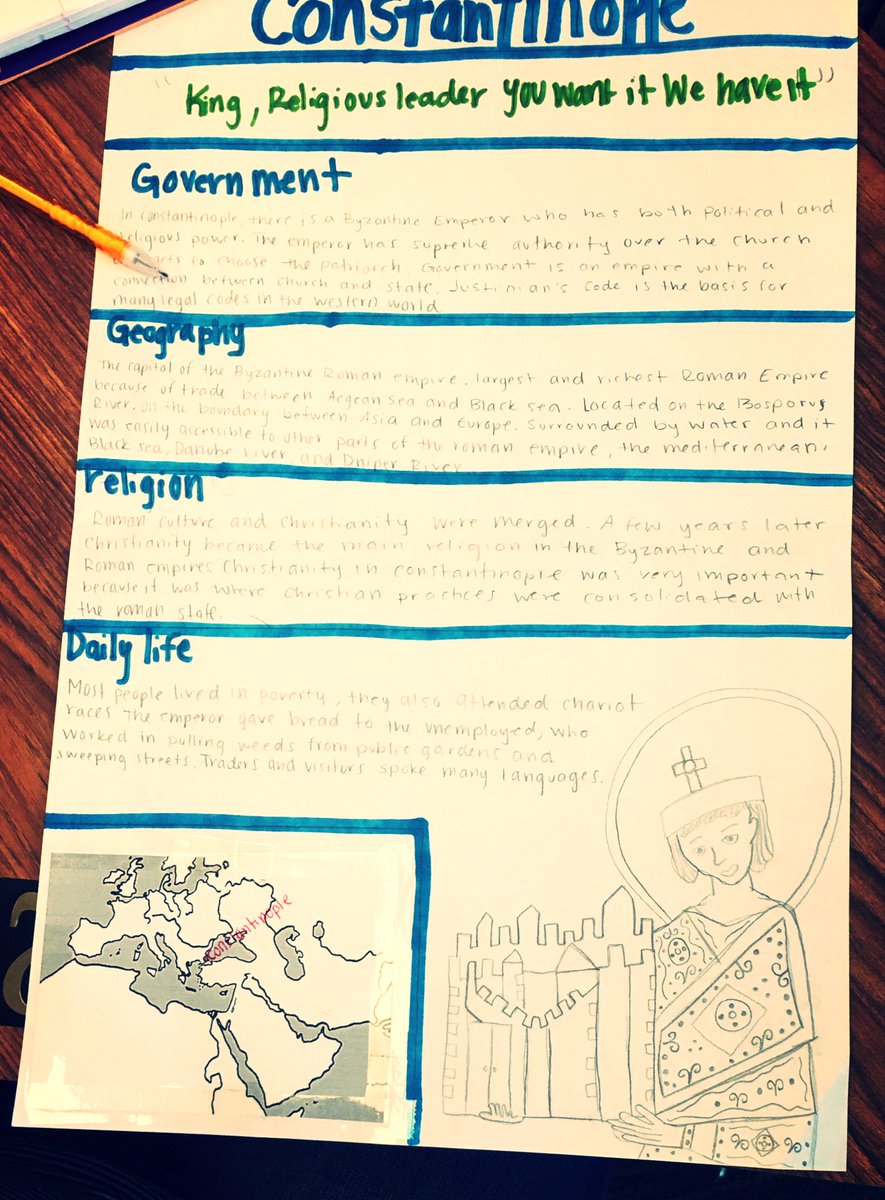 Constantinople
"King, Religious leader you want it We have it"
Government
In constantinople, there is a Byzantine Emperor who has both political and
religious power. The emperor has supreme authority over the church
to choose the patriarch. Government is an empire with a
connection between church and state. Justinian's code is the basis for
many legal codes in the western world
Geography
The capitol of the Byzantine Roman empire. largest and richest Roman Empire
because of trade between Aegean Sea and Black sea. Located on the Bosporus
River, on the boundary between Asia and Europe. Surrounded by water and it
was easily accessible to other parts of the roman empire, the mediterranean,
Black sea, Danube river and Dniper River
religion
Roman culture and christianity were merged. A few years later
Christianity became the main religion in the Byzantine and
Roman empires Christianity in constantinople was very important
because it was where christian practices were consolidated with
the roman state.
Daily life
Most people lived in poverty, they also attended chariot
races. The emperor gave bread to the unemployed, who
worked in pulling weeds from public gardens and
sweeping streets. Traders and visitors spoke many languages.
constantinople